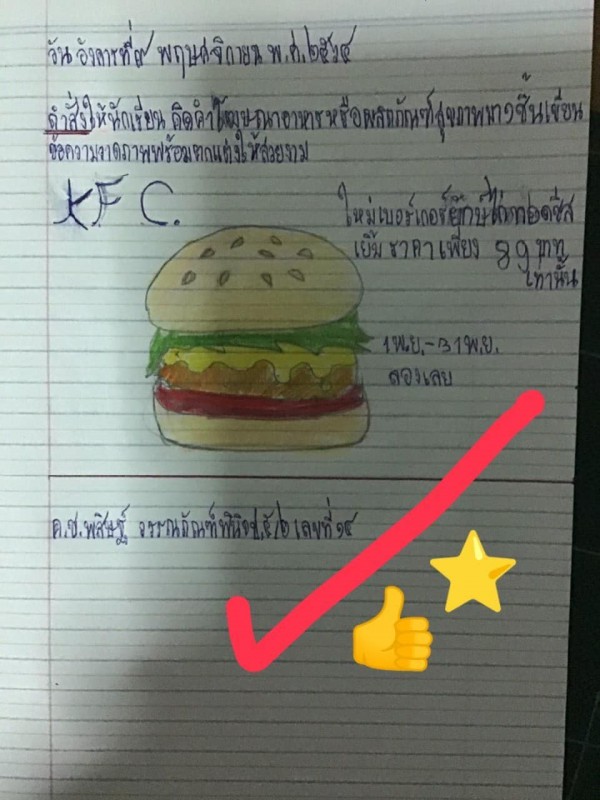 วันอังคารที่ ๙ พฤษศจิกายน พ.ศ.๒๕๖๔
คำสั่งให้นักเรียน คิดคำโฆษณาอาหารหรือผลิตภัณฑ์สุขภาพมา๑ชิ้นเขียน
ข้อความวาดภาพพร้อมตกแต่งให้สวยงาม
KFC.
ใหม่เบอร์เกอร์ยักษ์ไก่ทอดชีส
เยิ้ม ราคาเพียง 89 บาท
เท่านั้น
1 พ.ย.-31 พ.ย.
ลองเลย
ด.ช.พสิษฐ์ วรรณภัณฑ์พินิจ ป.๕/๒ เลขที่ ๑๕